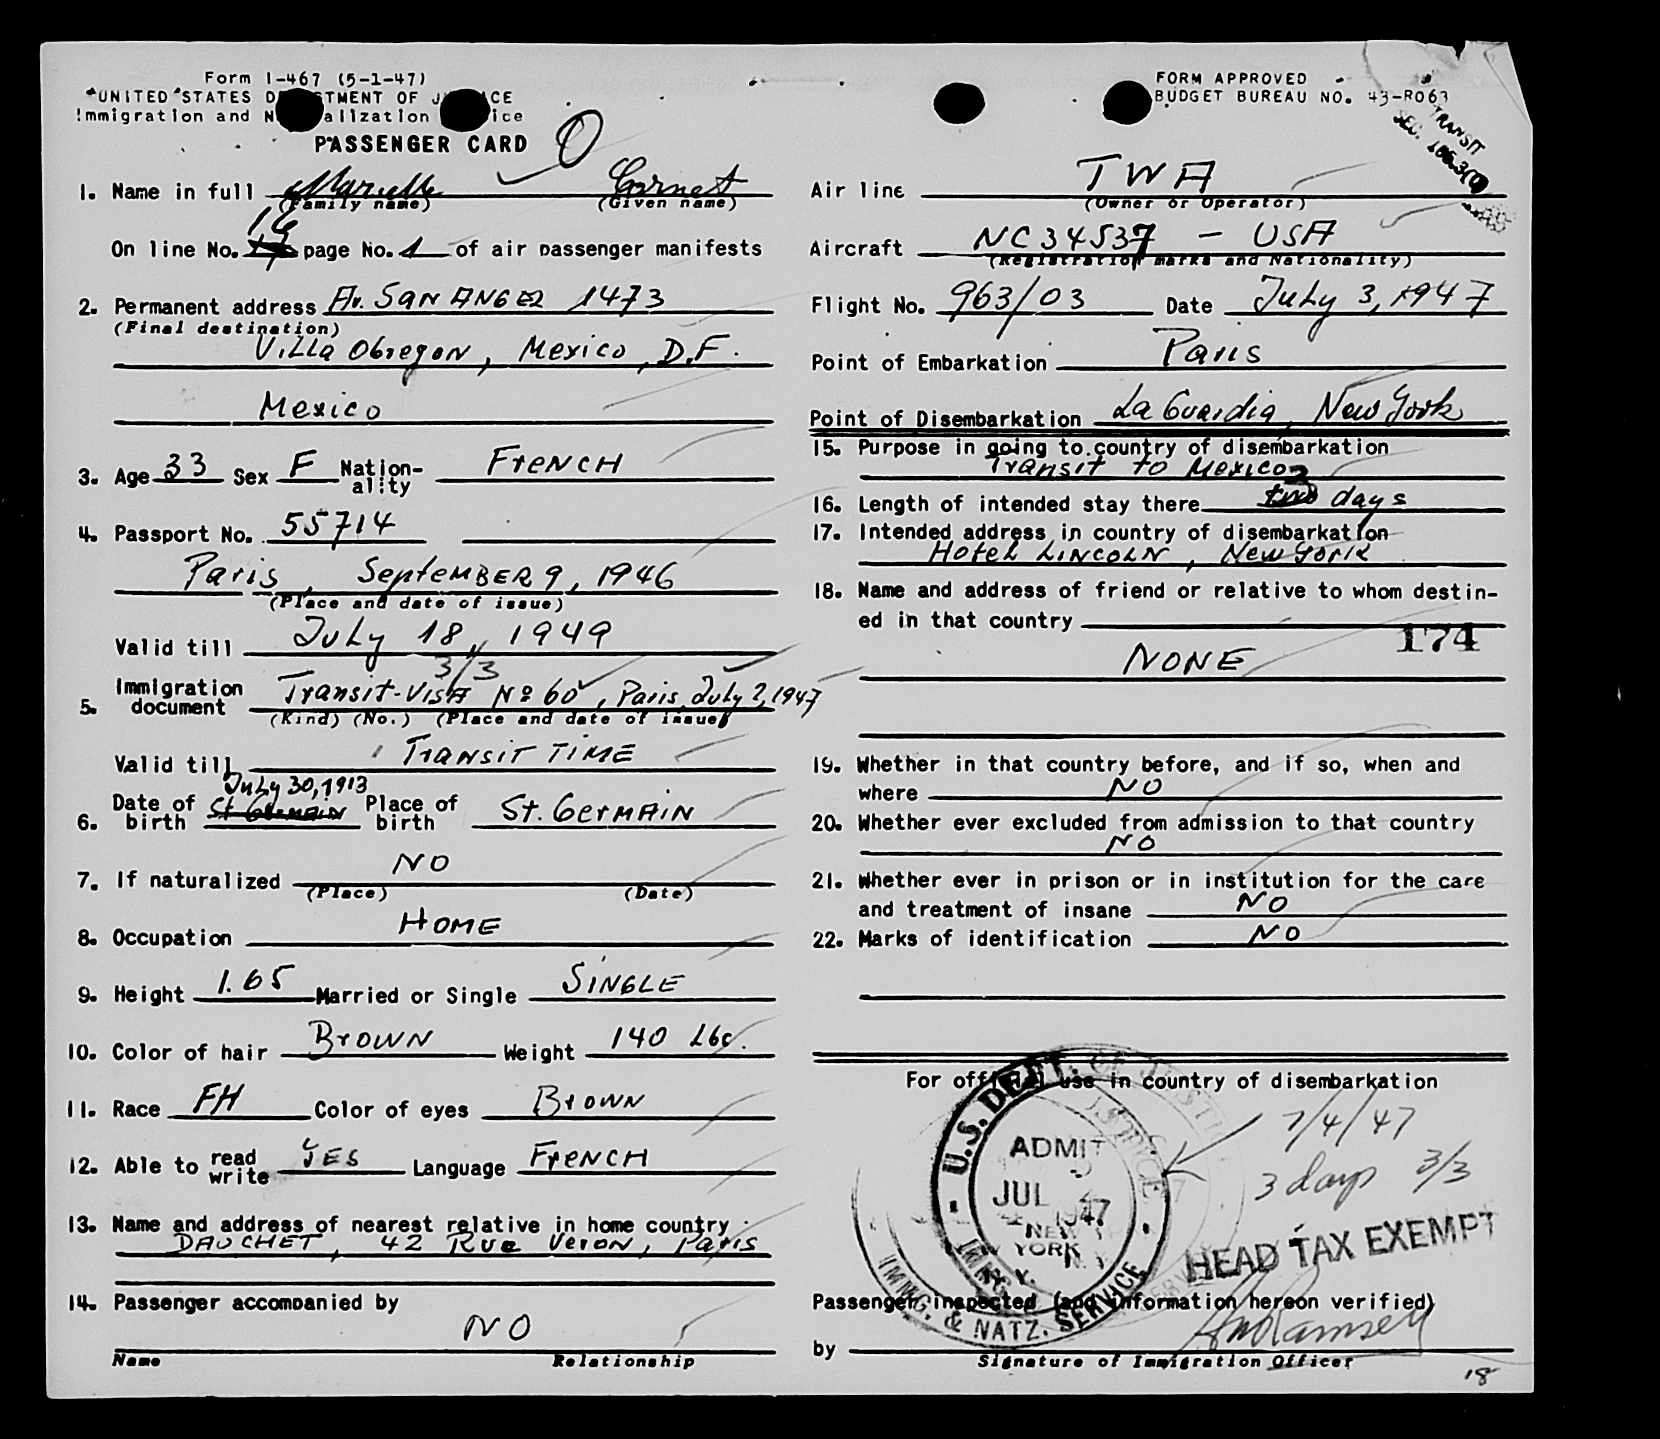 Form I-467 (5-1-47)
UNITED STATES DEPARTMENT OF JUSTICE
Immigration and Naturalization Service
PASSENGER CARD
O
1. Name in full Marielle Garnet
(Family name) (Given name)
On line No. 18 page No. 1 of air passenger manifests
2. Permanent address Av. SAN ANGEL 1473
(Final destination)
Villa Obregon, Mexico, D.F.
Mexico
3. Age 33 Sex F Nation-ality FrENCH
4. Passport No. 55714
Paris, SeptEMBER 9, 1946
(Place and date of issue)
Valid till July 18, 1949
3/3
5. Immigration document Transit-VisA No 60, Paris, July 2, 1947
(Kind) (No.) (Place and date of issue)
Valid till TrANSiT TiME
July 30, 1913
6. Date of birth St GerMAiN Place of birth St. GerMAiN
7. If naturalized NO
(Place) (Date)
8. Occupation HOME
9. Height 1.65 Married or Single SiNGLE
10. Color of hair BrOWN Weight 140 Lbs.
11. Race FH Color of eyes BrOWN
12. Able to read write YES Language FrENCH
13. Name and address of nearest relative in home country
DAUCHET, 42 Rue VerON, Paris
14. Passenger accompanied by
NO
Name Relationship
FORM APPROVED
BUDGET BUREAU NO. 43-R063
TRANSIT
SEC.
Air line TWA
(Owner or Operator)
Aircraft NC34537 - USA
(Registration marks and Nationality)
Flight No. 963/03 Date July 3, 1947
Point of Embarkation Paris
Point of Disembarkation La Guardia, New York
15. Purpose in going to country of disembarkation
Transit to Mexico
16. Length of intended stay there two 3 days
17. Intended address in country of disembarkation
HoteL LiNCOLN, New York
18. Name and address of friend or relative to whom destin-
ed in that country
174
NONE
19. Whether in that country before, and if so, when and
where NO
20. Whether ever excluded from admission to that country
NO
21. Whether ever in prison or in institution for the care
and treatment of insane NO
22. Marks of identification NO
For official use in country of disembarkation
U.S. DEPT. OF JUSTICE
ADMIT
JUL 1947
NEW YORK
N.Y.
IMMG. & NATZ. SERVICE
7/4/47
3 days 3/3
HEAD TAX EXEMPT
Passenger inspected (and information hereon verified)
by Ramsey
Signature of Immigration Officer
18